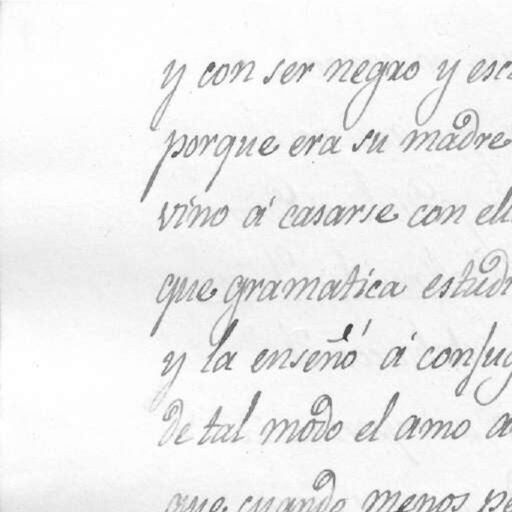 y con ser negro y esc
porque era su madre
vino á casarse con ell
que gramatica estudi
y la enseñó á conjug
de tal modo el amo a
que cuando menos pe